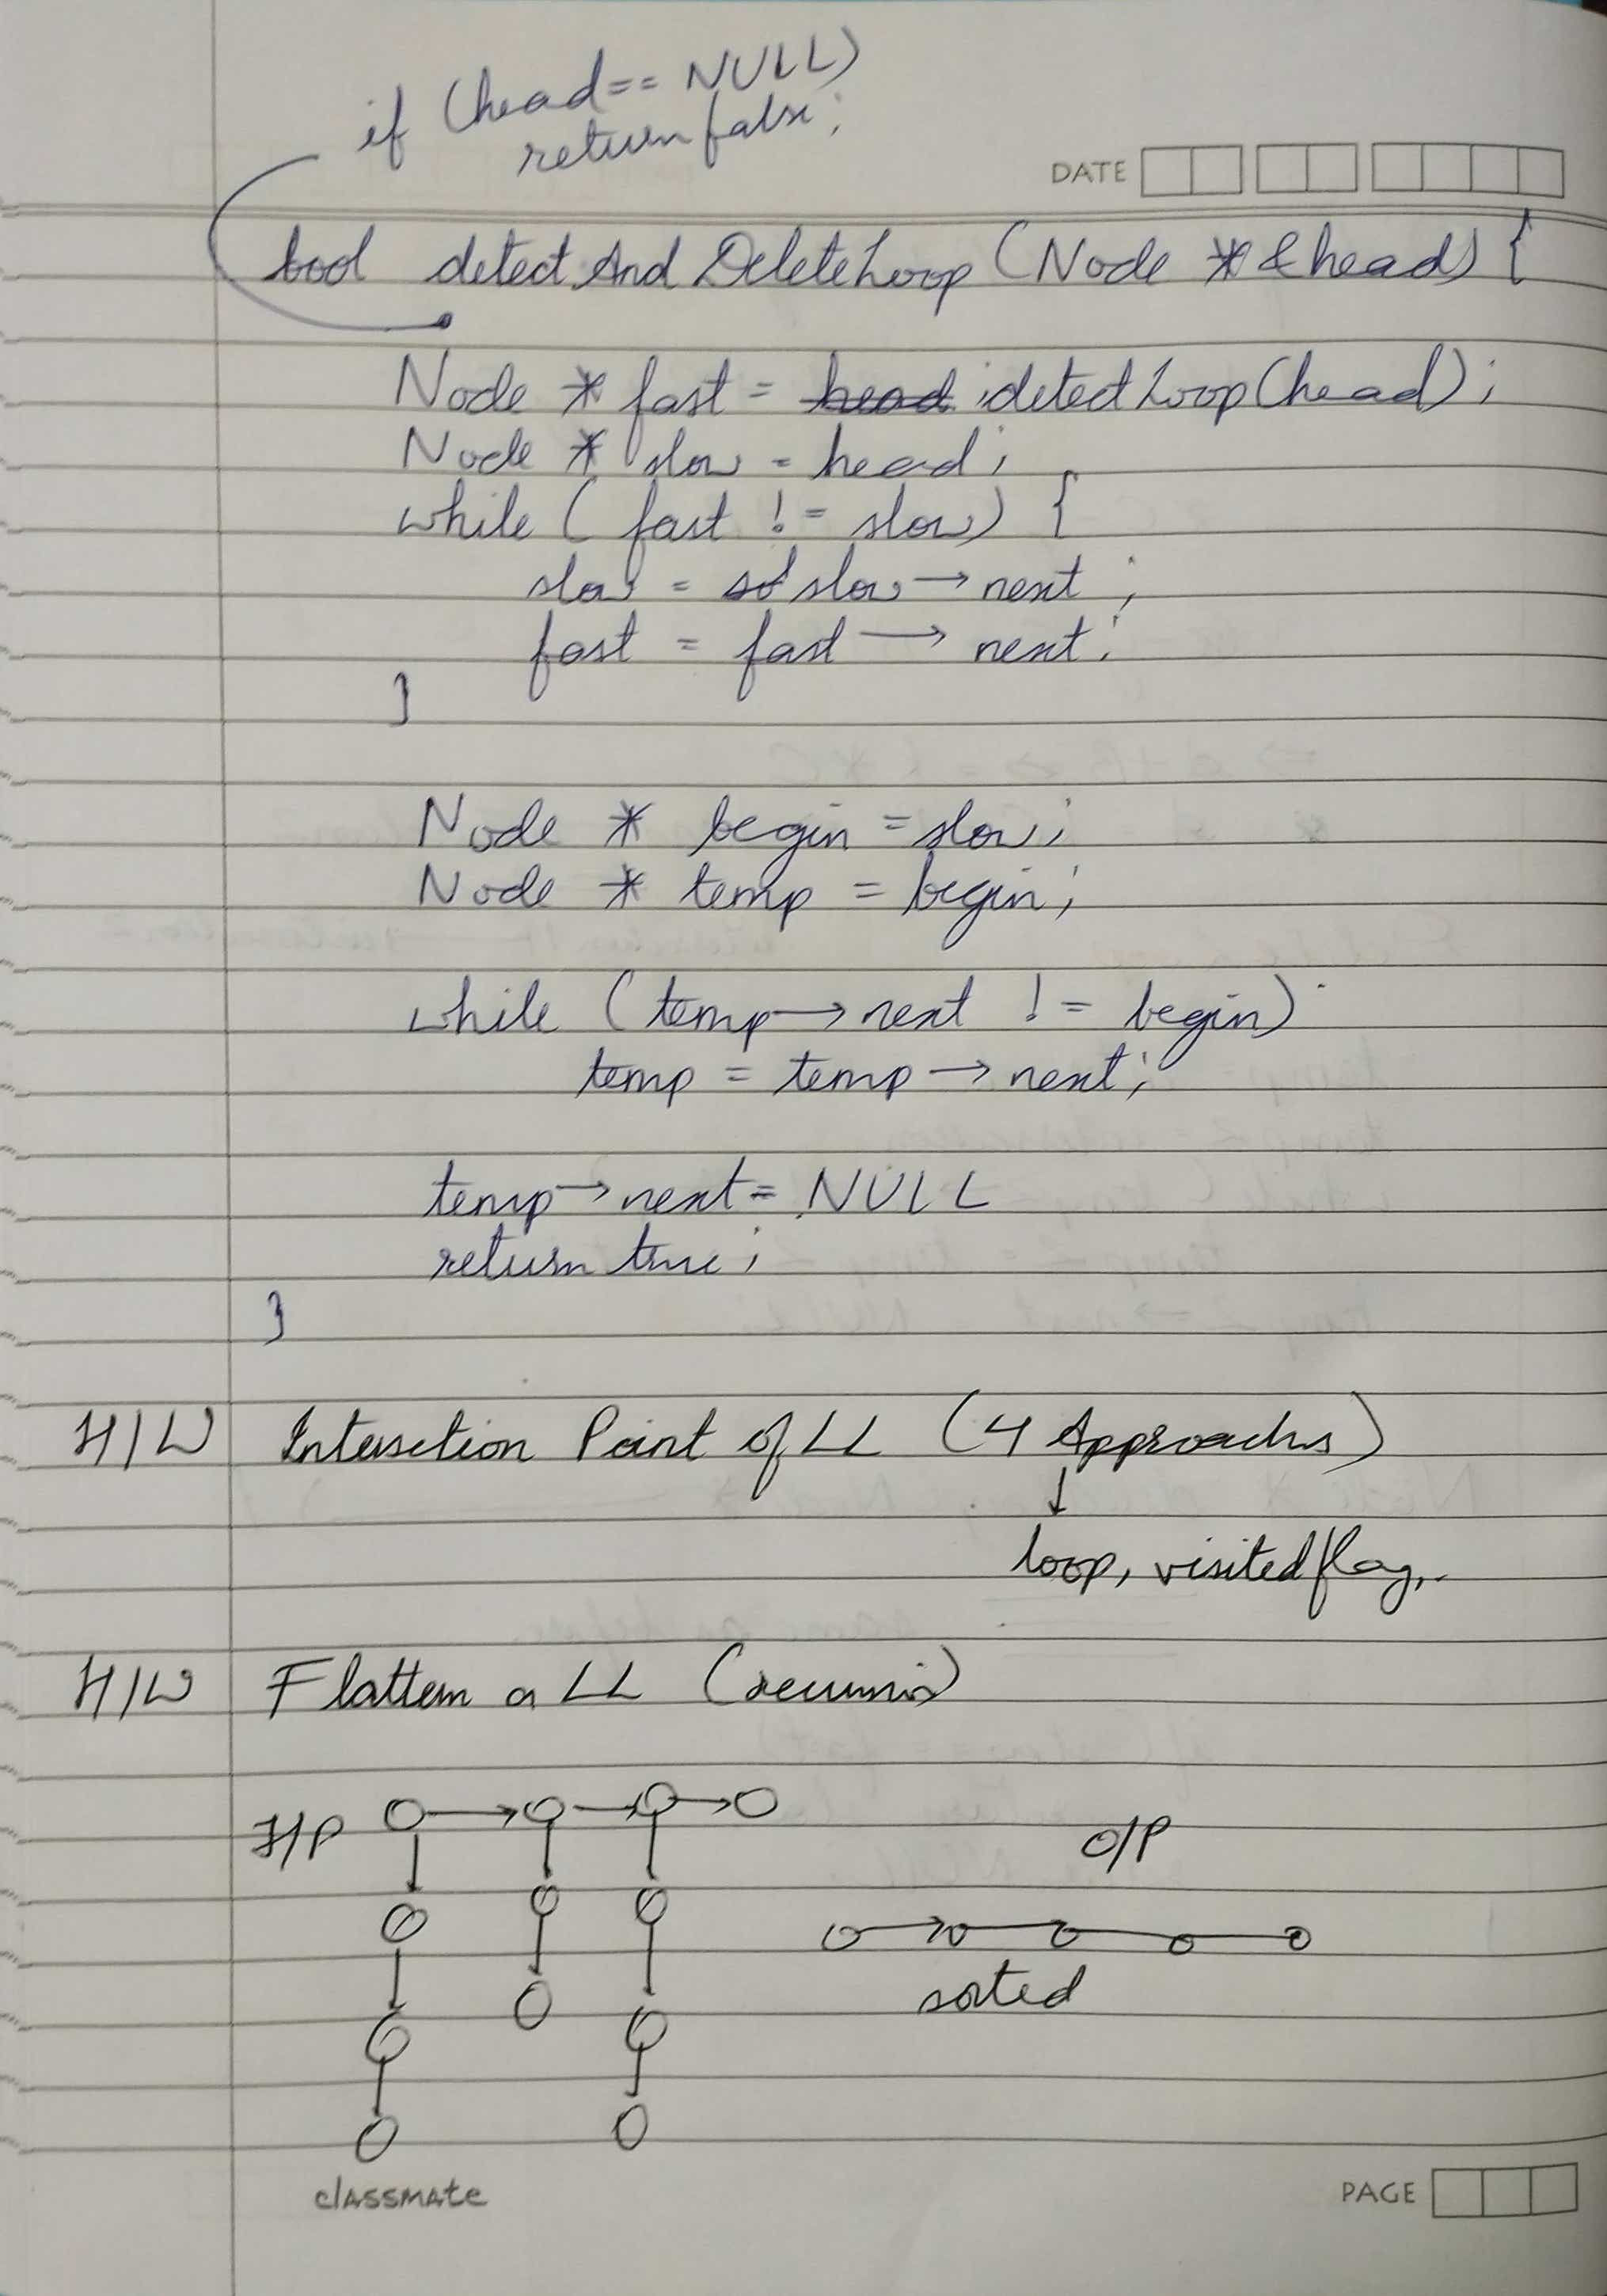 if (head == NULL)
return false;
DATE
bool detectAndDeleteLoop (Node *&head) {
Node * fast = head detectLoop(head);
Node * slow = head;
while ( fast != slow) {
slow = slow → next ;
fast = fast → next;
}
Node * begin = slow;
Node * temp = begin;
while (temp → next != begin)
temp = temp → next;
temp → next = NULL
return true;
}
H/W Intersection Point of LL (4 Approaches)
↓
loop, visited flag,..
H/W Flatten a LL
I/P
O/P
sorted
classmate
PAGE